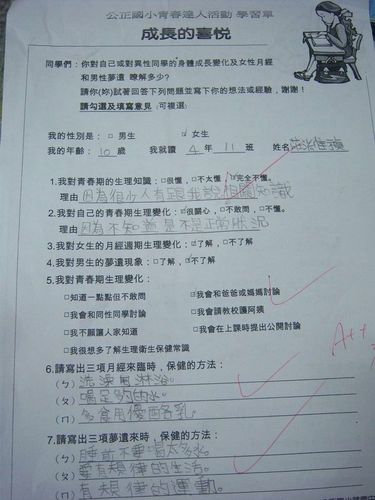 公正國小青春達人活動 學習單
成長的喜悅
同學們：你對自己或對異性同學的身體成長變化及女性月經
和男性夢遺 瞭解多少？
請你(妳)試著回答下列問題並寫下你的想法或經驗，謝謝！
請勾選及填寫意見（可複選）
我的性別是：□ 男生 □ 女生
我的年齡：10 歲 我就讀 4 年 11 班 姓名
1.我對青春期的生理知識：□很懂，□不太懂，☑完全不懂。
理由 因為很少人有跟我說相關知識
2.我對自己的青春期生理變化：☑很關心，□不敢問，□不懂。
理由 因為不知道是不是正常狀況
3.我對女生的月經週期生理變化：☑了解，□不了解
4.我對男生的夢遺現象：□了解，☑不了解
5.我對青春期生理變化：
□知道一點點但不敢問 ☑我會和爸爸或媽媽討論
□我會和同性同學討論 □我會請教校護阿姨
□我不願讓人家知道 □我會在上課時提出公開討論
□我很想多了解生理衛生保健常識
A++
6.請寫出三項月經來臨時，保健的方法：
（ㄅ）洗澡用淋浴。
（ㄆ）喝足夠的水。
（ㄇ）多食用優酪乳。
7.請寫出三項夢遺來時，保健的方法：
（ㄅ）睡前不要喝太多水。
（ㄆ）要有規律的生活。
（ㄇ）有規律的運動。